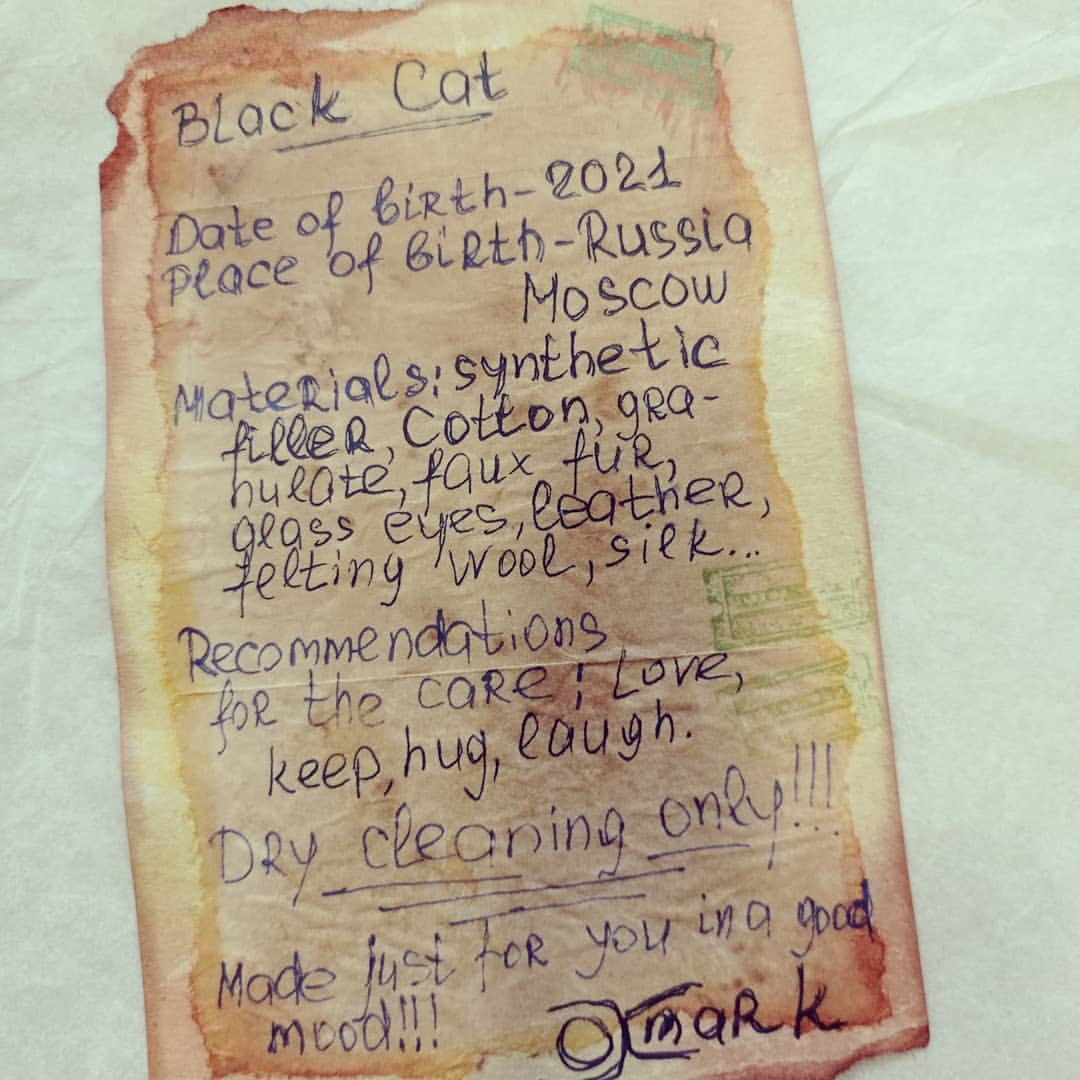 Black Cat
Date of birth-2021
Place of birth-Russia
Moscow
Materials: synthetic
filler, Cotton, gra-
nulate, faux fur,
glass eyes, leather,
felting wool, silk...
Recommendations
for the care: Love,
keep, hug, laugh.
Dry cleaning only!!!
Made just for you in a good
mood!!!